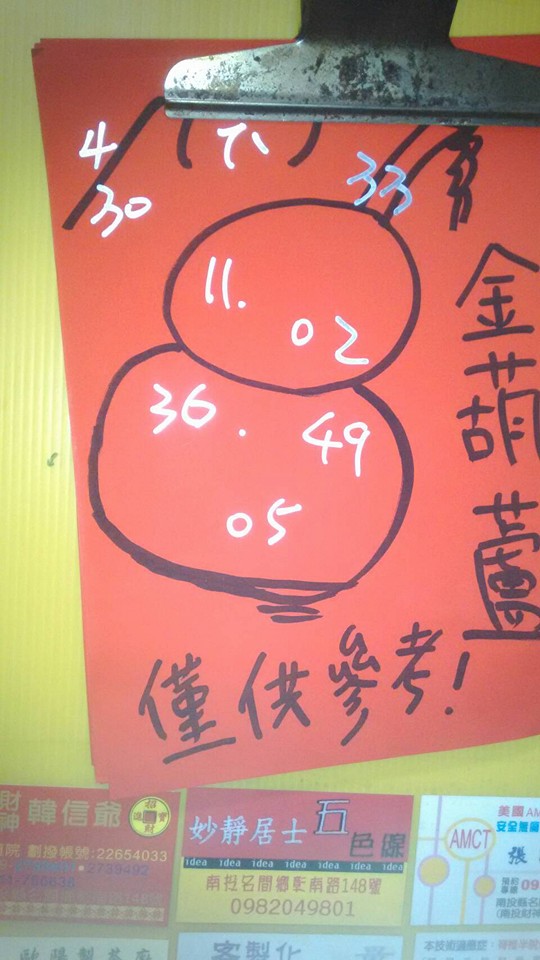 4/30
(六)
33
11.
02
36.
49
05
金葫蘆
僅供參考!
財神 韓信爺
招財進寶
劃撥帳號:22654033
妙靜居士 五色線
idea idea idea idea idea idea idea
南投名間鄉彰南路148號
0982049801
美國AM
安全無
AMCT
張
09
南投縣名
(南投財神
客製化
本技術適應症: